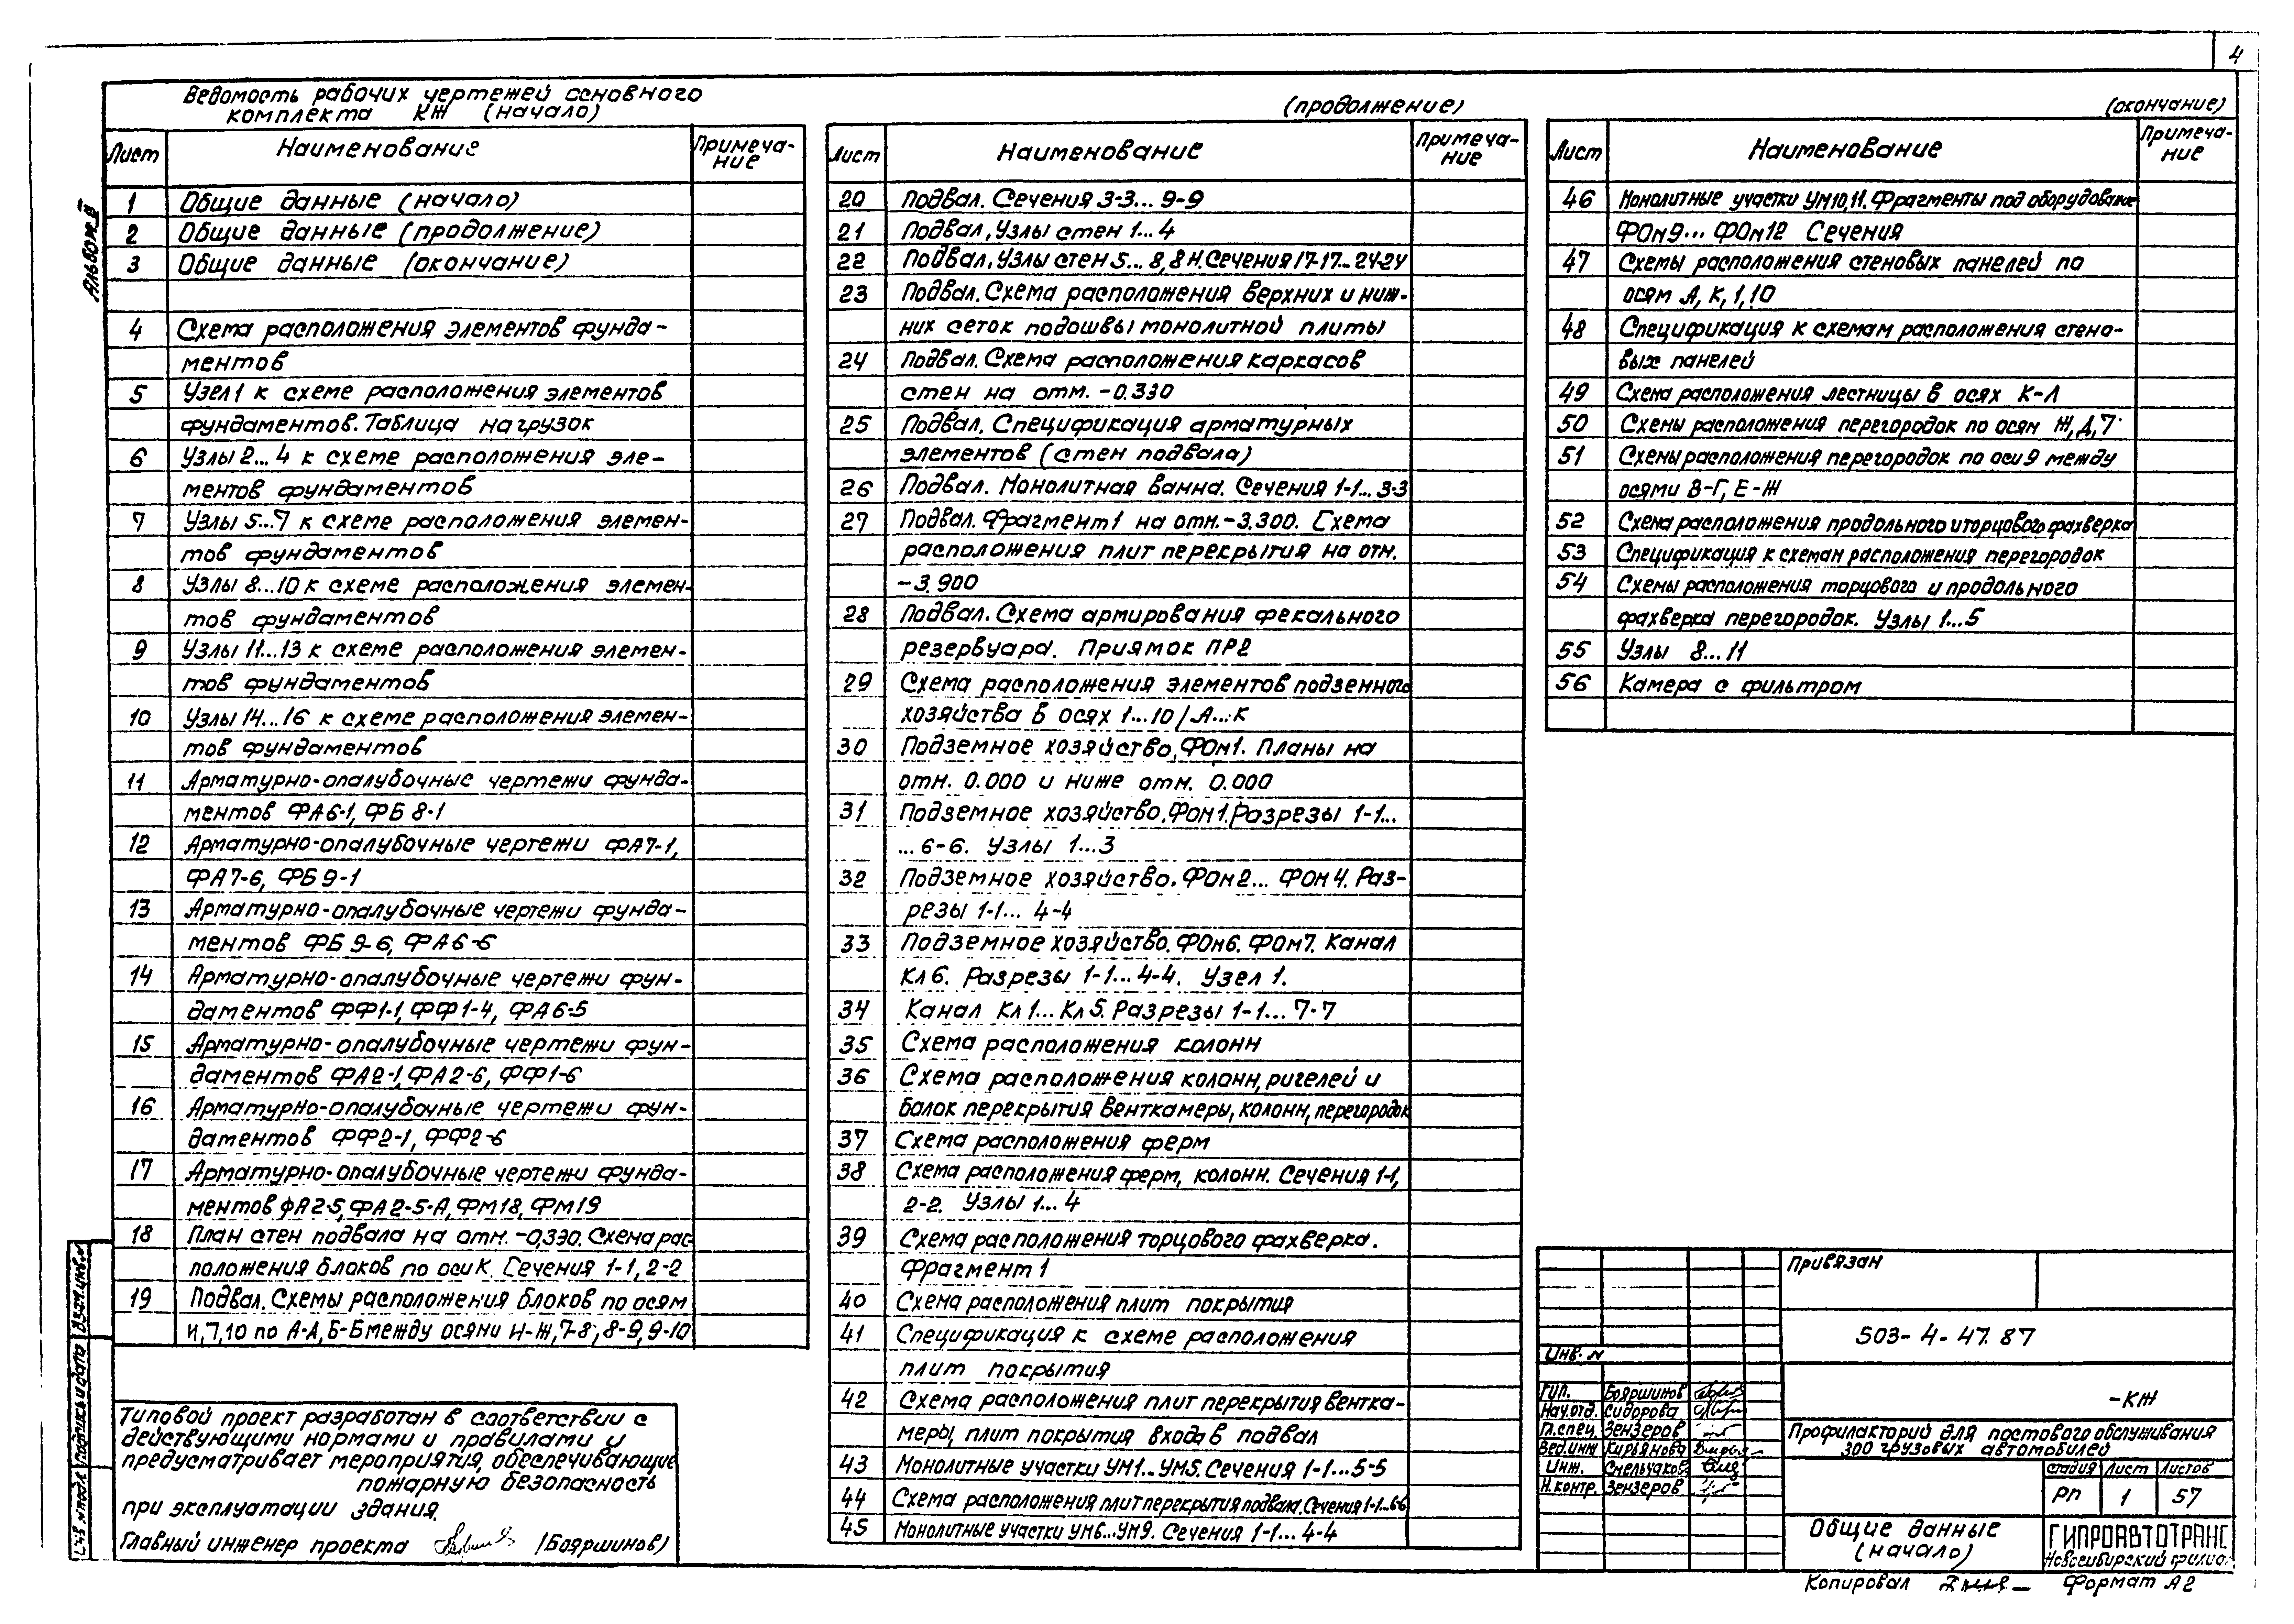 4
Альбом II
Ведомость рабочих чертежей основного
комплекта КЖ (начало)
Лист Наименование Примеча-
ние
1 Общие данные (начало)
2 Общие данные (продолжение)
3 Общие данные (окончание)
4 Схема расположения элементов фунда-
ментов
5 Узел 1 к схеме расположения элементов
фундаментов. Таблица нагрузок
6 Узлы 2...4 к схеме расположения эле-
ментов фундаментов
7 Узлы 5...7 к схеме расположения элемен-
тов фундаментов
8 Узлы 8...10 к схеме расположения элемен-
тов фундаментов
9 Узлы 11...13 к схеме расположения элемен-
тов фундаментов
10 Узлы 14...16 к схеме расположения элемен-
тов фундаментов
11 Арматурно-опалубочные чертежи фунда-
ментов ФА6-1, ФБ 8-1
12 Арматурно-опалубочные чертежи ФА7-1,
ФА7-6, ФБ9-1
13 Арматурно-опалубочные чертежи фунда-
ментов ФБ9-6, ФА6-6
14 Арматурно-опалубочные чертежи фун-
даментов ФФ1-1, ФФ1-4, ФА6-5
15 Арматурно-опалубочные чертежи фун-
даментов ФА2-1, ФА2-6, ФФ1-6
16 Арматурно-опалубочные чертежи фун-
даментов ФФ2-1, ФФ2-6
17 Арматурно-опалубочные чертежи фунда-
ментов ФА2-5, ФА2-5-А, ФМ18, ФМ19
18 План стен подвала на отм. -0,330. Схема рас
положения блоков по оси К. Сечения 1-1, 2-2
19 Подвал. Схемы расположения блоков по осям
И,7,10 по А-А, Б-Б между осями И-Ж,7-8; 8-9, 9-10
(продолжение)
Лист Наименование Примеча-
ние
20 Подвал. Сечения 3-3... 9-9
21 Подвал, Узлы стен 1...4
22 Подвал, Узлы стен 5... 8, 8н. Сечения 17-17... 24-24
23 Подвал. Схема расположения верхних и ниж-
них сеток подошвы монолитной плиты
24 Подвал. Схема расположения каркасов
стен на отм. -0.330
25 Подвал. Спецификация арматурных
элементов (стен подвала)
26 Подвал. Монолитная ванна. Сечения 1-1... 3-3
27 Подвал. Фрагмент 1 на отм. -3.300. Схема
расположения плит перекрытия на отм.
-3.900
28 Подвал. Схема армирования фекального
резервуара. Приямок ПР2
29 Схема расположения элементов подземного
хозяйства в осях 1...10/А...К
30 Подземное хозяйство, ФОм1. Планы на
отм. 0.000 и ниже отм. 0.000
31 Подземное хозяйство. ФОм1. Разрезы 1-1...
... 6-6. Узлы 1...3
32 Подземное хозяйство. ФОм2... ФОм4. Раз-
резы 1-1... 4-4
33 Подземное хозяйство. ФОм6. ФОм7. Канал
Кл6. Разрезы 1-1... 4-4. Узел 1.
34 Канал Кл1... Кл5. Разрезы 1-1... 7-7
35 Схема расположения колонн
36 Схема расположения колонн, ригелей и
балок перекрытия венткамеры, колонн, перегородок
37 Схема расположения ферм
38 Схема расположения ферм, колонн. Сечения 1-1,
2-2. Узлы 1... 4
39 Схема расположения торцового фахверка.
Фрагмент 1
40 Схема расположения плит покрытия
41 Спецификация к схеме расположения
плит покрытия
42 Схема расположения плит перекрытия вентка-
меры, плит покрытия входа в подвал
43 Монолитные участки УМ1... УМ5. Сечения 1-1... 5-5
44 Схема расположения плит перекрытия подвала. Сечения 1-1...6-6
45 Монолитные участки УМ6...УМ9. Сечения 1-1... 4-4
(окончание)
Лист Наименование Примеча-
ние
46 Монолитные участки УМ10,11. Фрагменты под оборудование
ФОм9... ФОм12 Сечения
47 Схемы расположения стеновых панелей по
осям А, К, 1, 10
48 Спецификация к схемам расположения стено-
вых панелей
49 Схема расположения лестницы в осях К-Л
50 Схемы расположения перегородок по осям Ж, Д, 7
51 Схемы расположения перегородок по оси 9 между
осями В-Г, Е-Ж
52 Схема расположения продольного и торцового фахверка
53 Спецификация к схемам расположения перегородок
54 Схемы расположения торцового и продольного
фахверка перегородок. Узлы 1...5
55 Узлы 8...11
56 Камера с фильтром
Типовой проект разработан в соответствии с
действующими нормами и правилами и
предусматривает мероприятия, обеспечивающие
пожарную безопасность
при эксплуатации здания.
Главный инженер проекта (Бояршинов)
Взам. инв. N
Подпись и дата
Инв. N подл.
Привязан
Инв. N
503-4-47.87
-КЖ
ГИП. Бояршинов
Нач.отд. Сидорова
Гл.спец. Зензеров
Вед.инж Кирьянова
Инж. Смельчаков
Н.контр. Зензеров
Профилакторий для постового обслуживания
300 грузовых автомобилей
стадия Лист Листов
РП 1 57
Общие данные
(начало)
ГИПРОАВТОТРАНС
Новосибирский филиал
Копировал Формат А2